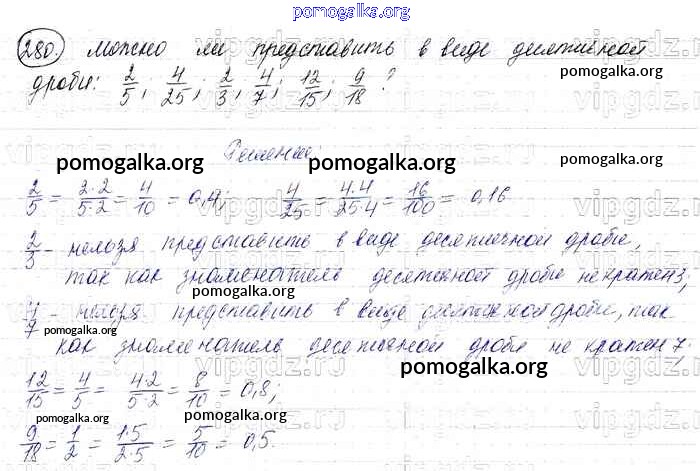 pomogalka.org
280. Можно ли представить в виде десятичной
дроби: 2/5; 4/25; 2/3; 4/7; 12/15; 9/18?
pomogalka.org
pomogalka.org
Решение:
pomogalka.org
pomogalka.org
2/5 = 2·2/5·2 = 4/10 = 0,4; 4/25 = 4·4/25·4 = 16/100 = 0,16
2/3 - нельзя представить в виде десятичной дроби,
так как знаменатель десятичной дроби не кратен 3;
pomogalka.org
4/7 - нельзя представить в виде десятичной дроби, так
pomogalka.org
как знаменатель десятичной дроби не кратен 7.
pomogalka.org
12/15 = 4/5 = 4·2/5·2 = 8/10 = 0,8;
pomogalka.org
9/18 = 1/2 = 1·5/2·5 = 5/10 = 0,5.
pomogalka.org